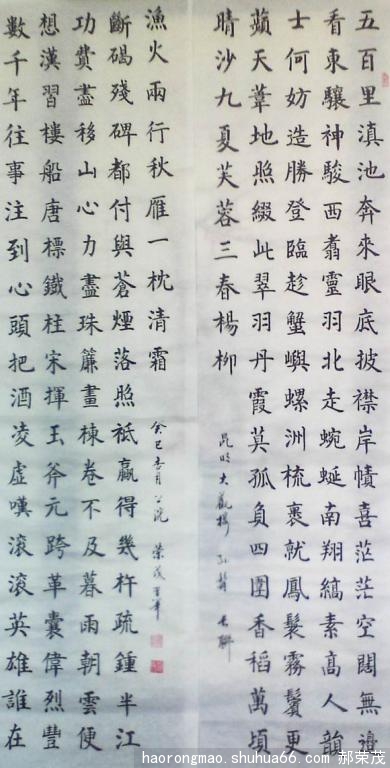 五百里滇池奔來眼底披襟岸幘喜茫茫空闊無邊
看東驤神駿西翥靈羽北走蜿蜒南翔縞素高人韻
士何妨造勝登臨趁蟹嶼螺洲梳裹就鳳鬟霧鬢更
蘋天葦地照綴此翠羽丹霞莫孤負四圍香稻萬頃
晴沙九夏芙蓉三春楊柳
昆明大觀樓 孫髯 長聯
數千年往事注到心頭把酒凌虛嘆滾滾英雄誰在
想漢習樓船唐標鐵柱宋揮玉斧元跨革囊偉烈豐
功費盡移山心力盡珠簾畫棟卷不及暮雨朝雲便
斷碣殘碑都付與蒼煙落照祗贏得幾杵疏鐘半江
漁火兩行秋雁一枕清霜
癸巳杏月 榮茂
haorongmao.shuhua66.com 郝荣茂